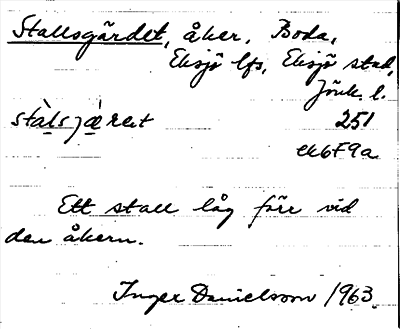 Stallsgärdet, åker, Boda,
Eksjö lfs, Eksjö stad,
Jönk. l.
stà̀lsjæ̀ret 251
ek6F9a
Ett stall låg förr vid
den åkern.
Inger Danielsson 1963.